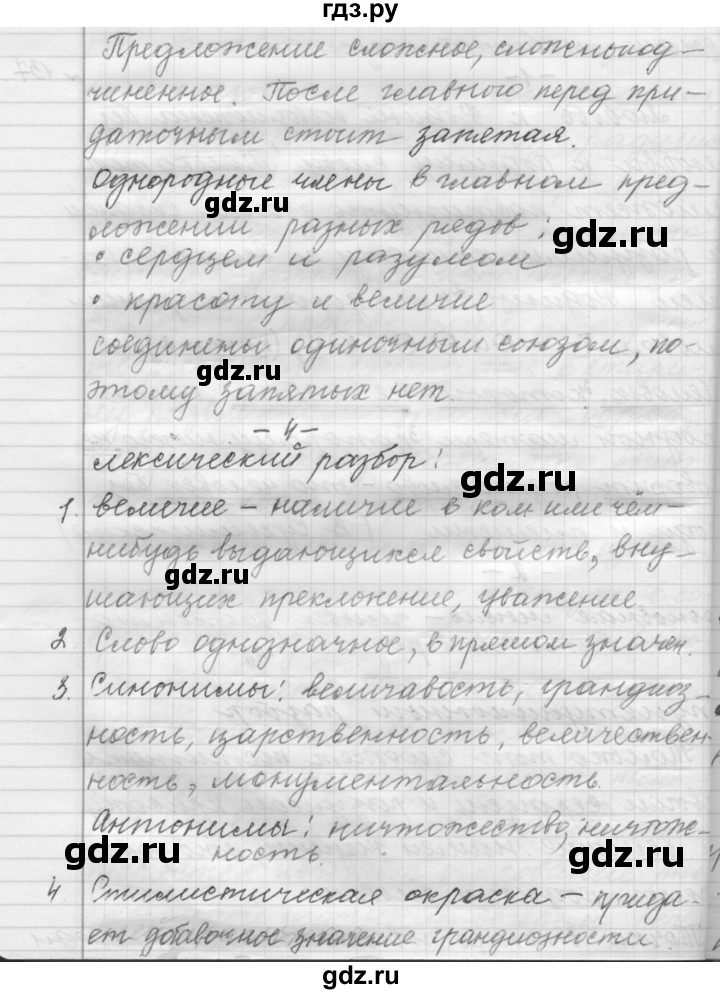 гдз.ру
Предложение сложное, сложнопод-
чиненное. После главного перед при-
даточным стоит запятая.
Однородные члены в главном пред-
gdz.ru
ложении разных рядов:
gdz.ru
• сердцем и разумом
• красоту и величие
соединены одиночным союзом, по-
gdz.ru
этому запятых нет.
- 4 -
лексический разбор:
gdz.ru
1. величие – наличие в ком или чём-
нибудь выдающихся свойств, вну-
gdz.ru
шающих преклонение, уважение
2. Слово однозначное, в прямом значен.
3. Синонимы: величавость, грандиоз-
gdz.ru
ность, царственность, величествен-
ность, монументальность.
Антонимы: ничтожество, ничтож-
gdz.ru
gdz.ru
ность.
4. Стилистическая окраска – прида-
gdz.ru
ет добавочное значение грандиозности.
gdz.ru